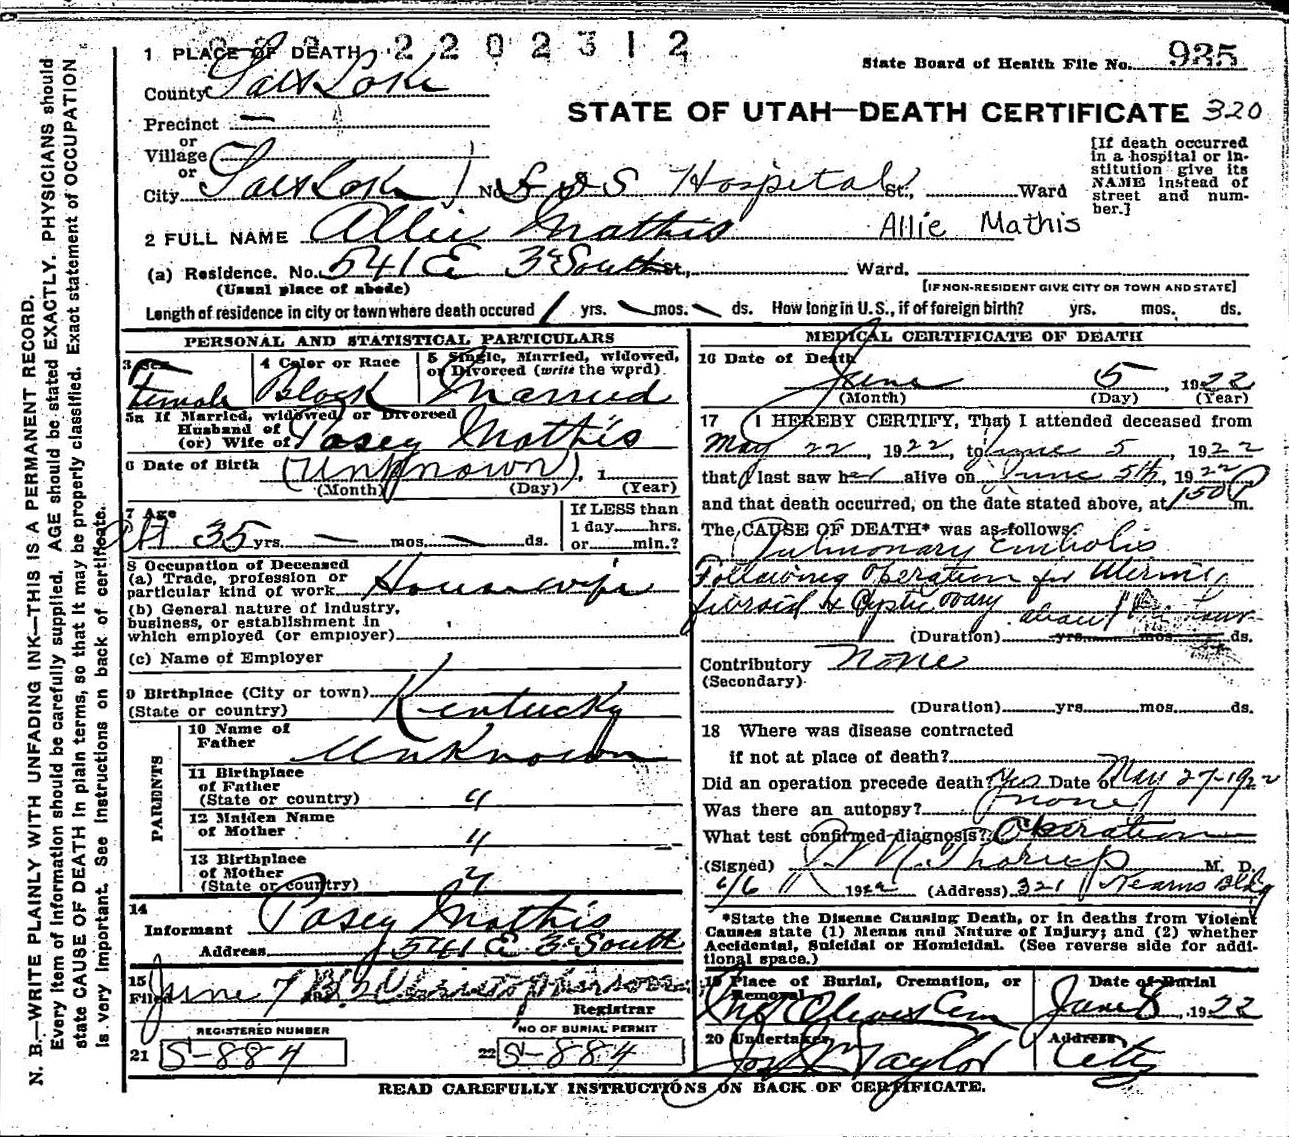 2202312
1 PLACE OF DEATH
State Board of Health File No. 985
County Salt Lake
STATE OF UTAH—DEATH CERTIFICATE 320
Precinct —
or
Village
or
City Salt Lake No. L D S Hospital St., Ward
[If death occurred
in a hospital or in-
stitution give its
NAME instead of
street and num-
ber.]
2 FULL NAME Allie Mathis Allie Mathis
(a) Residence. No. 541 E 3d South St., Ward.
(Usual place of abode) [IF NON-RESIDENT GIVE CITY OR TOWN AND STATE]
Length of residence in city or town where death occured 1 yrs. — mos. — ds. How long in U.S., if of foreign birth? yrs. mos. ds.
PERSONAL AND STATISTICAL PARTICULARS
3 Sex Female
4 Color or Race Black
5 Single, Married, widowed,
or Divorced (write the wprd). Married
5a If Married, widowed, or Divorced
Husband of
(or) Wife of Posey Mathis
6 Date of Birth (Unknown), 1
(Month) (Day) (Year)
7 Age
abt 35 yrs. — mos. — ds.
If LESS than
1 day hrs.
or min.?
8 Occupation of Deceased
(a) Trade, profession or
particular kind of work Housewife
(b) General nature of Industry,
business, or establishment in
which employed (or employer)
(c) Name of Employer
9 Birthplace (City or town)
(State or country) Kentucky
PARENTS
10 Name of
Father Unknown
11 Birthplace
of Father
(State or country) "
12 Maiden Name
of Mother "
13 Birthplace
of Mother
(State or country) "
14
Informant Posey Mathis
Address 541 E 3d South
15
Filed June 7
Registrar
REGISTERED NUMBER NO OF BURIAL PERMIT
21 S-884 22 S-884
MEDICAL CERTIFICATE OF DEATH
16 Date of Death
June 5, 1922
(Month) (Day) (Year)
17 I HEREBY CERTIFY, That I attended deceased from
May 22, 1922, to June 5, 1922
that I last saw her alive on June 5th, 1922
and that death occurred, on the date stated above, at 150 P m.
The CAUSE OF DEATH* was as follows:
Pulmonary Embolis
Following operation for Uterine
fibroid & Cystic ovary about hour
(Duration) yrs. mos. ds.
Contributory None
(Secondary)
(Duration) yrs. mos. ds.
18 Where was disease contracted
if not at place of death?
Did an operation precede death? Yes Date of May 27-1922
Was there an autopsy? none
What test confirmed diagnosis? Operation
(Signed) Thorup M. D.
6/6 1922 (Address) 321 Kearns Bldg
*State the Disease Causing Death, or in deaths from Violent
Causes state (1) Menns and Nature of Injury; and (2) whether
Accidental, Suicidal or Homicidal. (See reverse side for addi-
tional space.)
19 Place of Burial, Cremation, or
Removal Mt Olivet Cem
Date of Burial
June 8, 1922
20 Undertaker Jos Wm Taylor
Address City
READ CAREFULLY INSTRUCTIONS ON BACK OF CERTIFICATE.
N. B.—WRITE PLAINLY WITH UNFADING INK—THIS IS A PERMANENT RECORD.
Every item of information should be carefully supplied. AGE should be stated EXACTLY. PHYSICIANS should
state CAUSE OF DEATH in plain terms, so that it may be properly classified. Exact statement of OCCUPATION
is very important. See instructions on back of certificate.